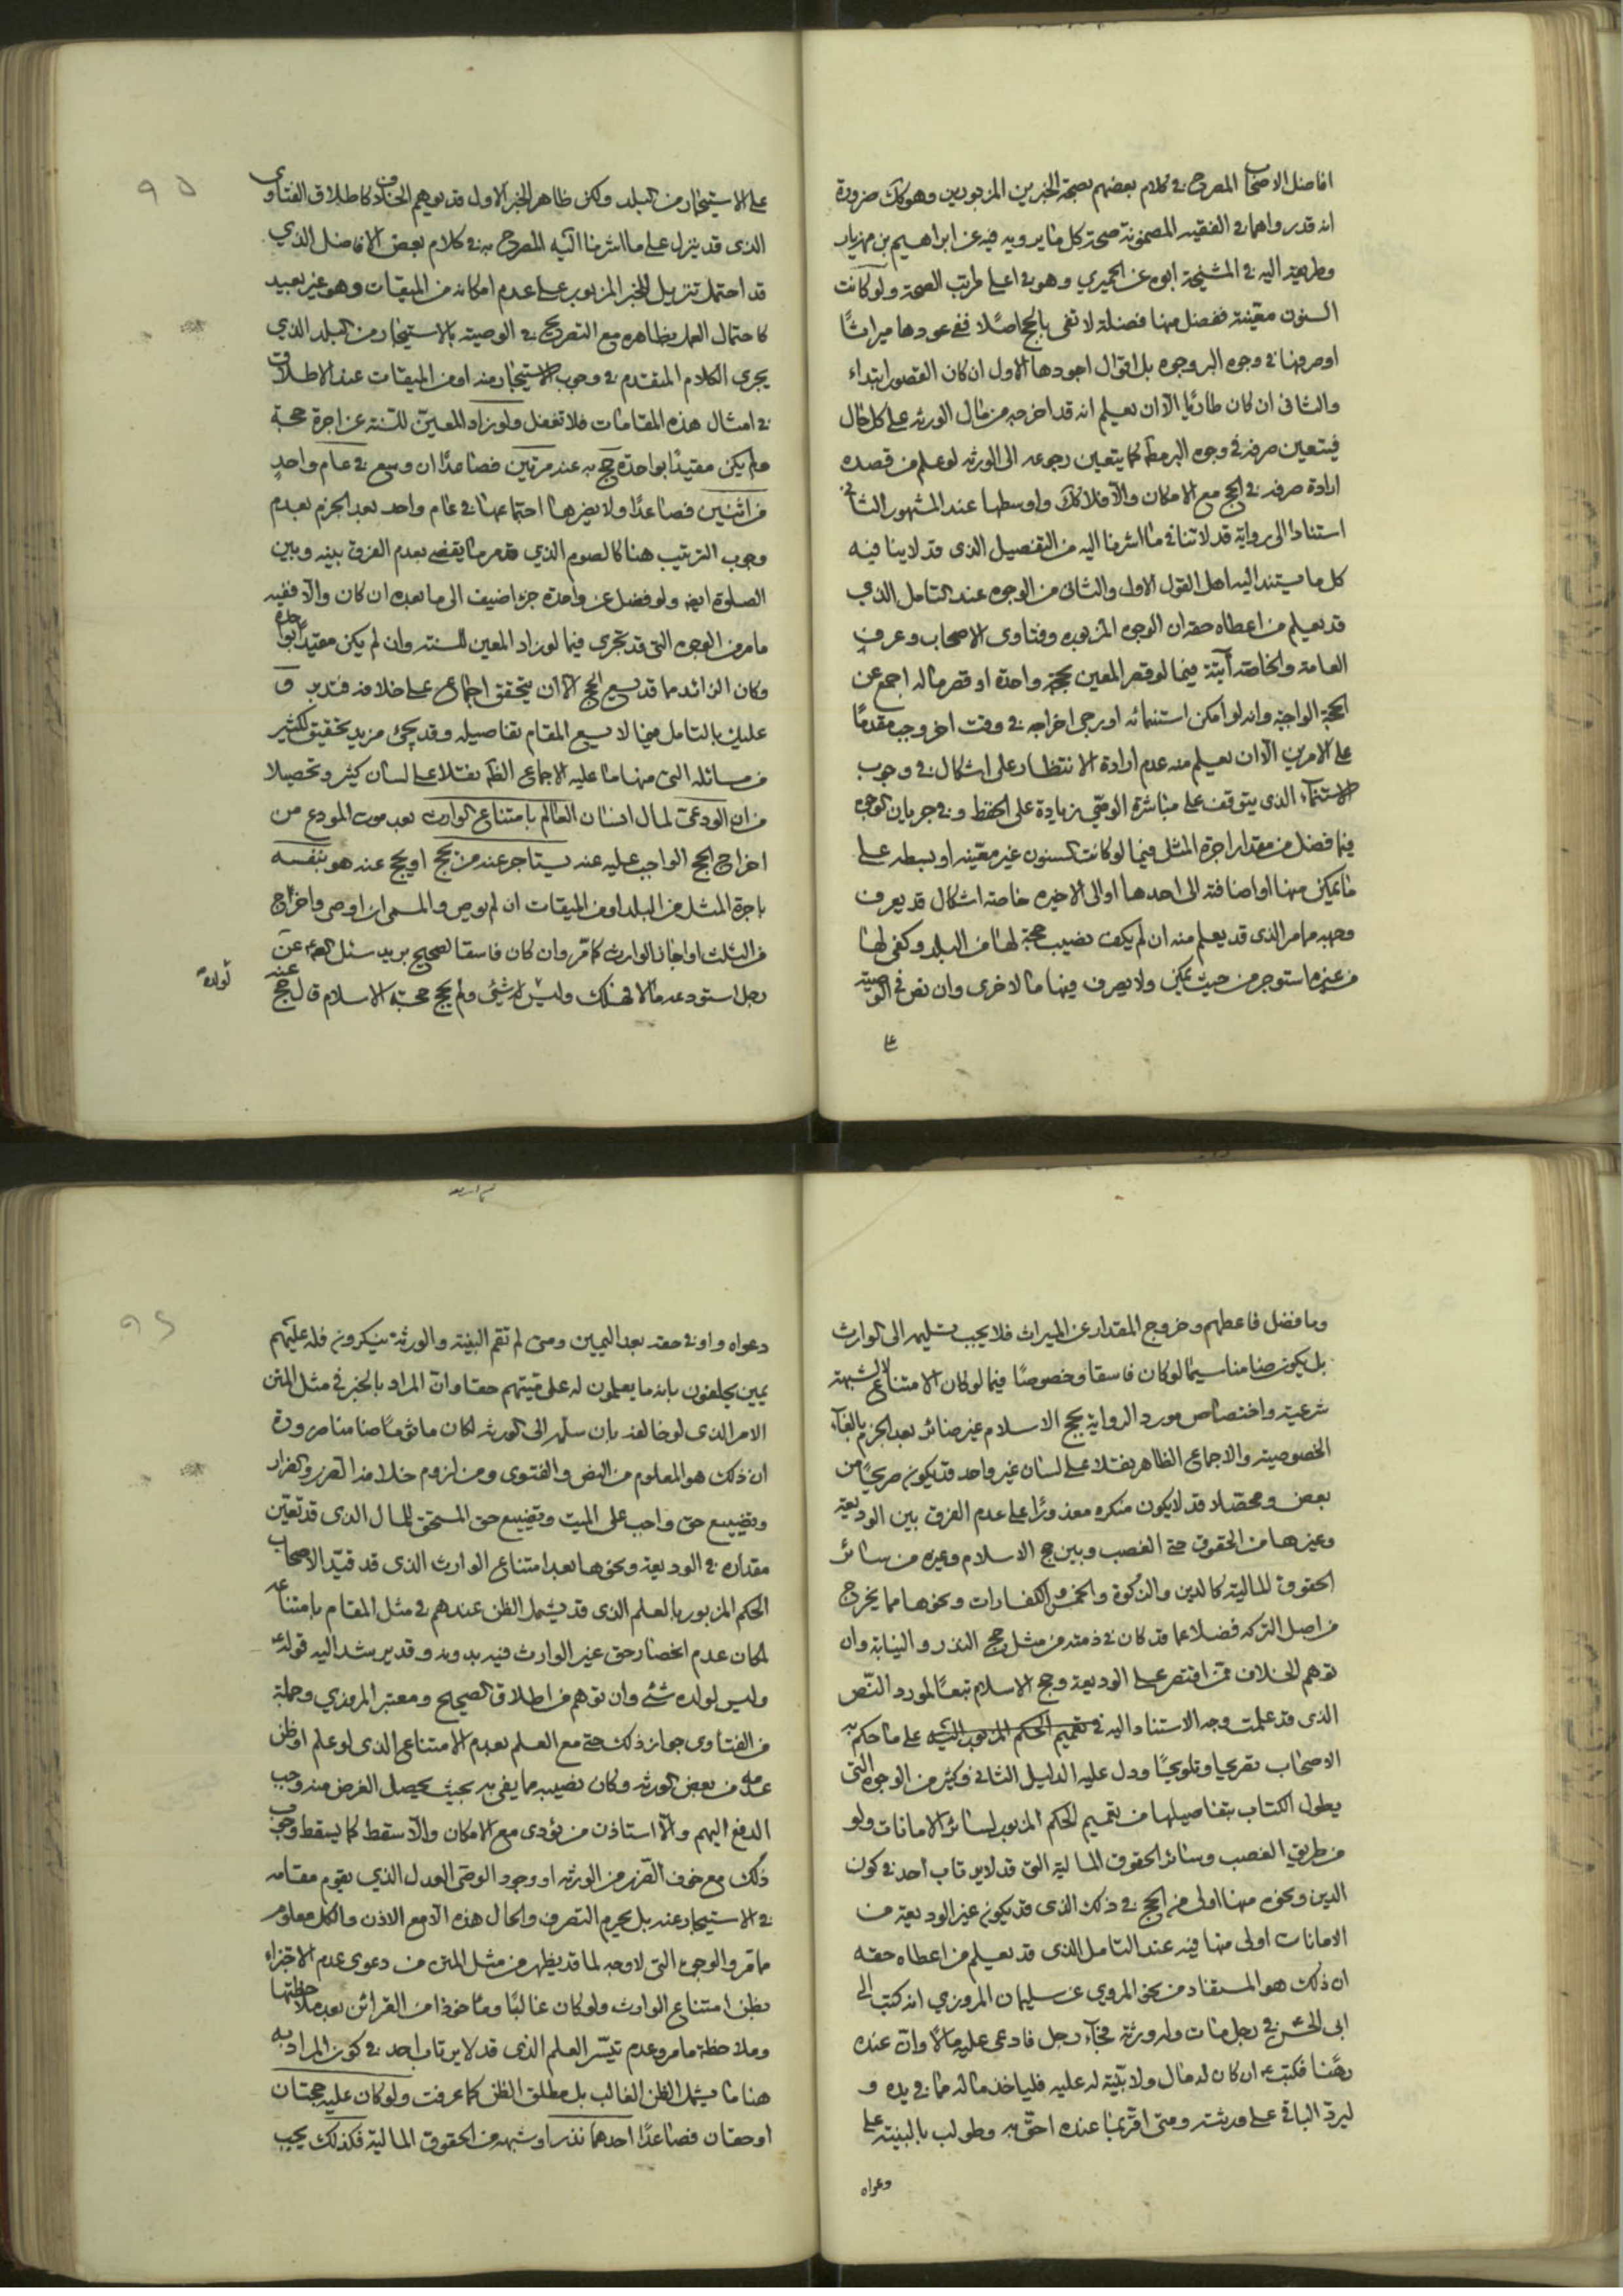 افاضل الاصحاب المصرح في كلام بعضهم بصحة الخبرين المزبورين وهو كك ضرورة
انه قد رواهما في الفقيه المضمونة صحة كل ما يرويه فيه عن ابراهيم بن مهزيار
وطريقه اليه في المشيخة ابوه عن الحميري وهو في اعلى مراتب الصحة ولو كانت
السنون معينة ففضل منها فضلة لا تفي بالحج اصلا ففي عودها ميراثا
او صرفها في وجوه البر وجوه بل اقوال اجودها الاول ان كان القصور ابتداء
والثاني ان كان طاريا الا ان يعلم انه قد اخرجه من مال الورثه على كل حال
فيتعين صرفه في وجوه البر مط كما يتعين رجوعه الى الورثه لو علم من قصده
ارادة صرفه في الحج مع الامكان والا فلا كك واوسطها عند المشهور الثاني
استنادا الى رواية قد لا تنافي ما اشرنا اليه من التفصيل الذي قد لا ينافيه
كل ما يستند اليه اهل القول الاول والثاني من الوجوه عند التامل الذي
قد يعلم من اعطاه حقه ان الوجوه المزبوره وفتاوى الاصحاب وعرف
العامة والخاصة آتية فيما لو قصر المعين بحجة واحدة او قصر ماله اجمع عن
الحجة الواجبة وانه لو امكن استنمائه او يرجى اخراجه في وقت اخر وجب مقدما
على الامرين الا ان يعلم منه عدم ارادة الانتظار على اشكال في وجوب
الاستنماء الذي يتوقف على مباشرة الوصي زيادة على الحفظ وفي جريان الوجوه
فيما فضل من مقدار اجرة المثل فيما لو كانت السنون غير معينه او بسطه على
ما يمكن منها او اضافته الى احدها او الى الاخيره خاصة اشكال قد يعرف
وجهه مما مر الذي قد يعلم منه ان لم يكف نصيب حجة لها من البلد وكفى لها
من غيره استوجر من حيث يمكن ولا يصرف فيها مال الاخرى وان نص في الوصية
على
على الاستيجار من البلد ولكن ظاهر الخبر الاول قد يوهم الخلاف كاطلاق الفتاوى
الذي قد ينزل على ما اشرنا اليه المصرح به في كلام بعض الافاضل الذي
قد احتمل تنزيل الخبر المزبور على عدم امكانه من الميقات وهو غير بعيد
كاحتمال العمل بظاهره مع التصريح في الوصية بالاستيجار من البلد الذي
يجري الكلام المتقدم في وجوب الاستيجار منه او من الميقات عند الاطلاق
في امثال هذه المقامات فلا تغفل ولو زاد المعين للسنة عن اجرة حجة
ولم يكن مقيدا بواحدة حج به عنه مرتين فصاعدا ان وسع في عام واحد
من اثنين فصاعدا ولا يضرها اجتماعها في عام واحد بعد الجزم بعدم
وجوب الترتيب هنا كالصوم الذي قد مر ما يقضي بعدم الفرق بينه وبين
الصلوة ايضا ولو فضل عن واحدة جزء اضيف الى ما بعده ان كان والا ففيه
ما مر من الوجوه التي قد تجري فيما لو زاد المعين للسنة وان لم يكن مقيدا بواحدة
وكان الزائد مما قد يسع الحج الا ان يتحقق اجماع على خلافه فتدبر و
عليك بالتامل فيما لا يسع المقام تفاصيله وقد يجئ مزيد تحقيق لكثير
من مسائله التي منها ما عليه الاجماع الظه نقلا على لسان كثير وتحصيلا
من ان الودعي لمال انسان العالم بامتناع الوارث بعد موت المودع من
اخراج الحج الواجب عليه عنه يستاجر عنه من يحج او يحج عنه هو بنفسه
باجرة المثل من البلد او من الميقات ان لم يوص والمسمى ان اوصى واخراج
من الثلث او اجاز الوارث كما مر وان كان فاسقا لصحيح بريد سئل الصم عن
رجل استودعه مالا فهلك وليس لولده شئ ولم يحج حجة الاسلام قال حج عنه
لولده
وما فضل فاعطهم وخروج المقدار عن الميراث فلا يجب تسليمه الى الوارث
بل يكون ضامنا سيما لو كان فاسقا وخصوصا فيما لو كان الامتناع لا لشبهة
شرعية واختصاص مورد الرواية بحج الاسلام غير ضائر بعد الجزم بالغاء
الخصوصية والاجماع الظاهر نقلا على لسان غير واحد قد يكون صريحا من
بعض ومحصلا قد لا يكون منكره معذورا على عدم الفرق بين الوديعة
وغيرها من الحقوق حتى الغصب وبين حج الاسلام وغيره من سائر
الحقوق المالية كالدين والزكوة والخمس والكفارات ونحوها مما يخرج
من اصل التركه فضلا عما قد كان في ذمته من مثل حج النذر والنيابة وان
توهم الخلاف ممن اقتصر على الوديعة وحج الاسلام تبعا لمورد النص
الذي قد علمت وجه الاستناد اليه في تعميم الحكم المزبور على ما حكم به
الاصحاب تصريحا وتلويحا ودل عليه الدليل الثاني وكثير من الوجوه التي
يطول الكتاب بتفاصيلها من تعميم الحكم المزبور لسائر الامانات ولو
من طريق الغصب وسائر الحقوق المالية التي قد لا يرتاب احد في كون
الدين ونحوه منها اولى من الحج في ذلك الذي قد يكون غير الوديعة من
الامانات اولى منها فيه عند التامل الذي قد يعلم من اعطاه حقه
ان ذلك هو المستفاد من نحو المروي عن سليمان المروزي انه كتب الى
ابي الحسن في رجل مات وله ورثة فجاء رجل فادعى عليه مالا وان عنده
رهنا فكتب ان كان له مال ولا بينة له عليه فلياخذ ماله مما في يده و
ليرد الباقي على ورثته ومتى اقر بما عنده اخذ به وطولب بالبينة على
دعواه
دعواه واوفي حقه بعد اليمين ومتى لم تقم البينة والورثة ينكرون فله عليهم
يمين يحلفون بالله ما يعلمون له على ميتهم حقا وان المراد بالخبر في مثل المتن
الامر الذي لو خالفه بان سلمه الى الورثه لكان مأثوما ضامنا ضرورة
ان ذلك هو المعلوم من النص والفتوى ومن لزوم خلافه الضرر والضرار
وتضييع حق واجب على الميت وتضييع حق المستحق للمال الذي قد تعين
مقداره في الوديعة ونحوها بعد امتناع الوارث الذي قد قيد الاصحاب
الحكم المزبور بالعلم الذي قد يشمل الظن عندهم في مثل المقام بامتناعه
لمكان عدم انحصار حق غير الوارث فيه بدونه وقد يرشد اليه قوله
وليس لولده شئ وان توهم من اطلاق الصحيح ومعتبر المروزي وجملة
من الفتاوى جواز ذلك حتى مع العلم بعدم الامتناع الذي لو علم او ظن
عدمه من بعض الورثه وكان نصيبه مما يفي به بحيث يحصل الغرض منه وجب
الدفع اليهم والا استاذن من يؤدى مع الامكان والا سقط كما يسقط وجوب
ذلك مع خوف الضرر من الورثه او وجود الوصي العدل الذي يقوم مقامه
في الاستيجار عنه بل يحرم التصرف والحال هذه الا مع الاذن والكل معلوم
مما مر والوجوه التي لا وجه لما قد يظهر من مثل المتن من دعوى عدم الاجتزاء
بظن امتناع الوارث ولو كان غالبا وماخوذا من القرائن بعد ملاحظتها
وملاحظة ما مر وعدم تيسر العلم الذي قد لا يرتاب احد في كون المراد به
هنا ما يشمل الظن الغالب بل مطلق الظن كما عرفت ولو كان عليه حجتان
او حقان فصاعدا احدهما نذر او شبهه من الحقوق المالية فكذلك يجب